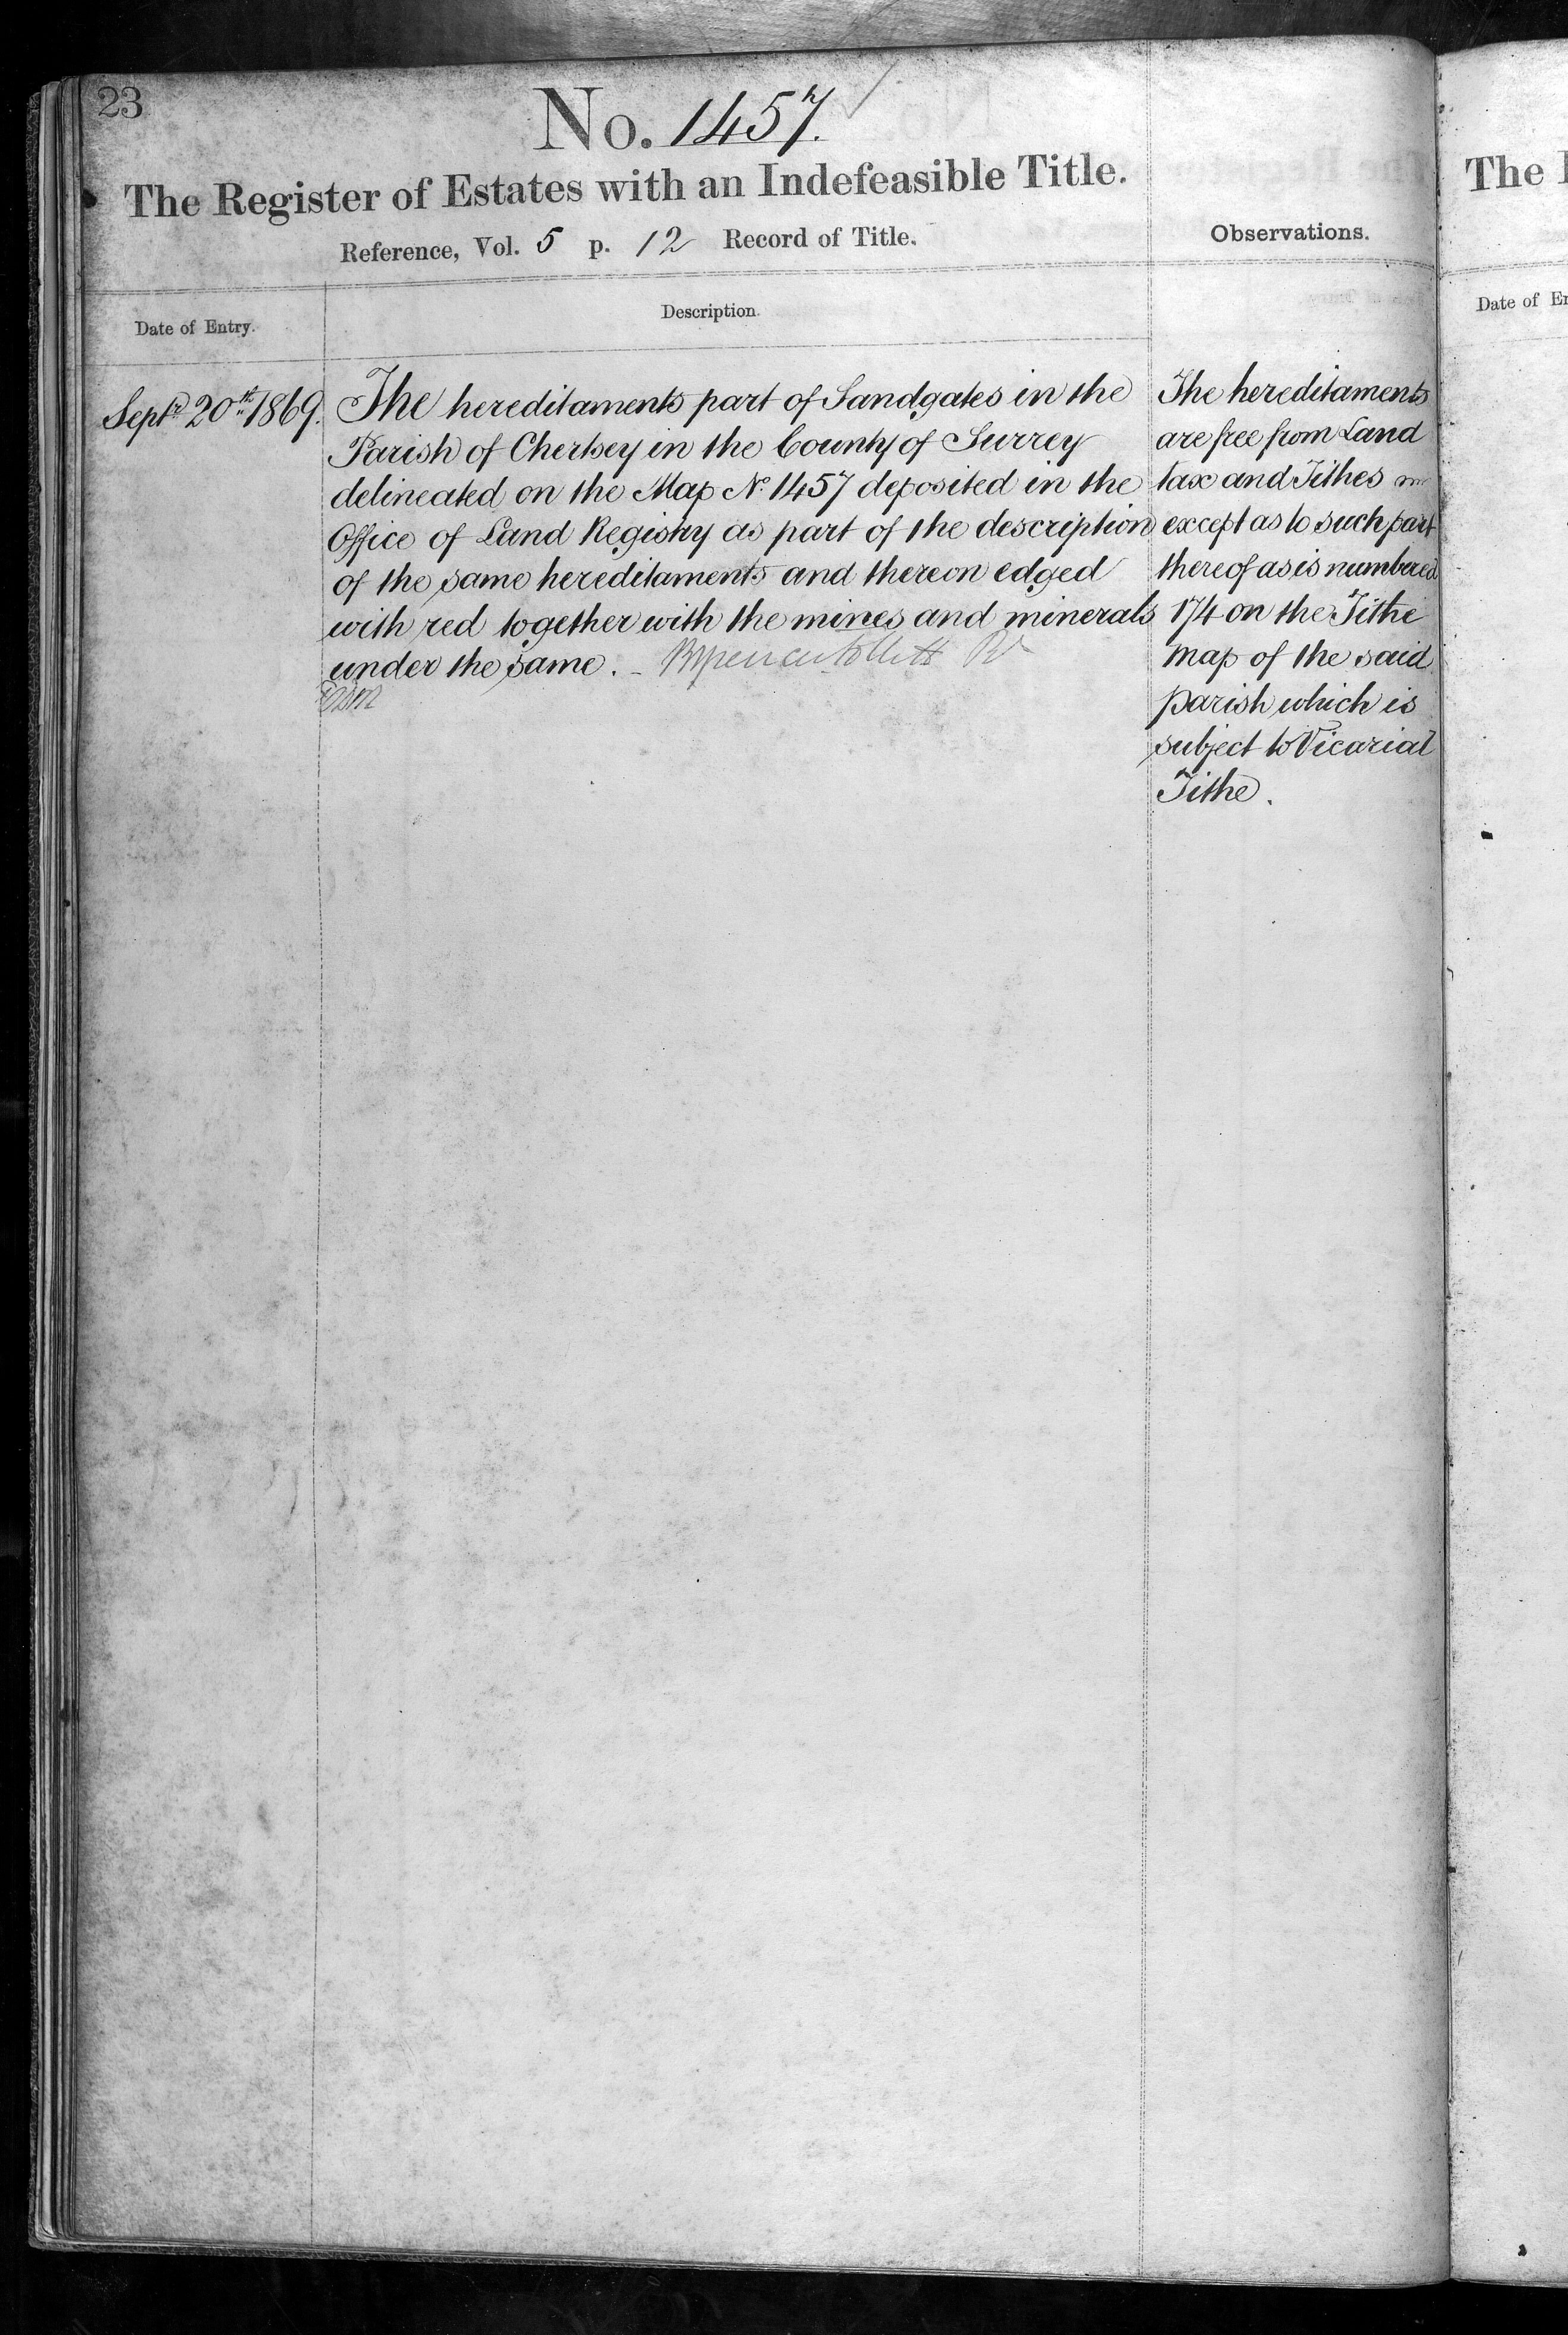 23
No. 1457.
The Register of Estates with an Indefeasible Title.
Reference, Vol. 5 p. 12 Record of Title.
Observations.
Date of Entry.
Description.
Septr 20th 1869.
The hereditaments part of Sandgates in the
Parish of Chertsey in the County of Surrey
delineated on the Map No. 1457 deposited in the
Office of Land Registry as part of the description
of the same hereditaments and thereon edged
with red together with the mines and minerals
under the same.
The hereditaments
are free from Land
tax and Tithes
except as to such part
thereof as is numbered
174 on the Tithe
map of the said
parish which is
subject to Vicarial
Tithe.
The
Date of